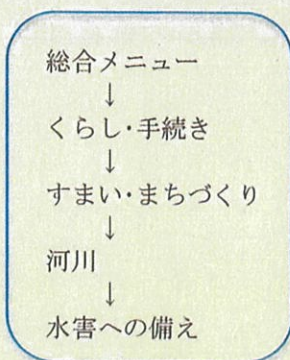 総合メニュー
↓
くらし・手続き
↓
すまい・まちづくり
↓
河川
↓
水害への備え